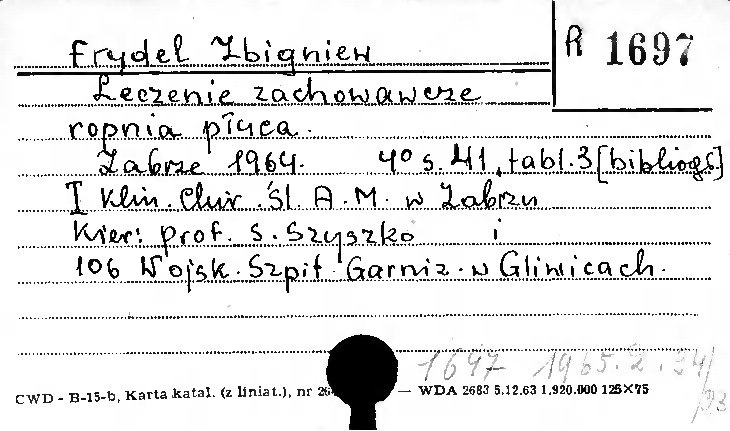 Frydel Zbigniew
R 1697
Leczenie zachowawcze
ropnia płuca.
Zabrze 1964. 4° s. 41, tabl. 3 [bibliogr.]
I Klin. Chir. Śl. A. M. w Zabrzu
Kier: prof. S. Szyszko i
106 Wojsk. Szpit. Garniz. w Gliwicach.
1697 1965.2.34/
/33
CWD - B-15-b, Karta katal. (z liniat.), nr 26 — WDA 2683 5.12.63 1.920.000 125×75